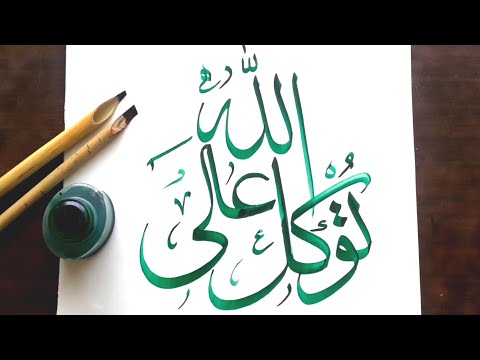 توكل عالى الله